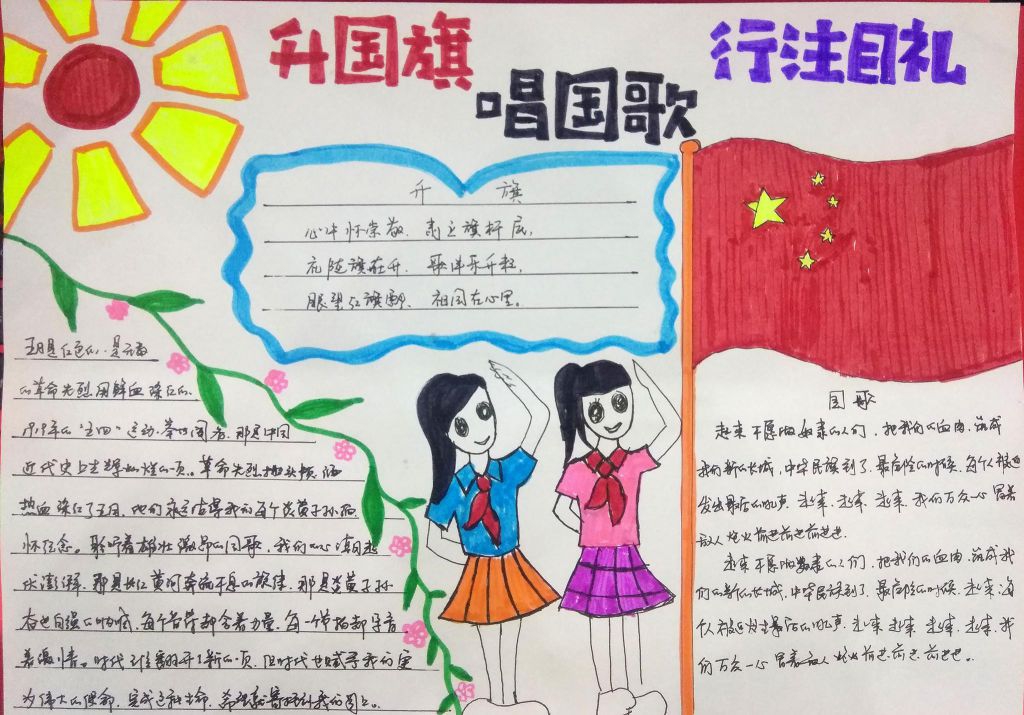 升国旗
唱国歌
行注目礼
升 旗
心中怀崇敬，肃立旗杆底，
礼随旗在升，歌洋乐升起，
眼望红旗飘，祖国在心里。
五月是红色的，是无数
的革命先烈用鲜血染红的。
1919年的“五四”运动，举世闻名，那是中国
近代史上光辉的一页。革命先烈抛头颅、洒
热血染红了五月，他们永远值得我们每个炎黄子孙
怀念。聆听着雄壮激昂的国歌，我们的心潮起
伏澎湃，那是如黄河奔腾不息的旋律，那是炎黄子孙
奋进自强的呐喊，每个音符都含着力量，每一个节拍都孕育
着激情。时代虽翻开了新的一页，但时代也赋予我们更
为伟大的使命，完成这种使命，希望就寄托在我们的身上。
国 歌
起来不愿做奴隶的人们，把我们的血肉，筑成
我们新的长城，中华民族到了，最危险的时候，每个人被迫
发出最后的吼声，起来，起来，起来，我们万众一心，冒着
敌人炮火前进前进前进进。
起来不愿做奴隶的人们，把我们的血肉，筑成我
们的新的长城，中华民族到了，最危险的时候，起来，每
个人被迫发出最后的吼声，起来起来，起来，起来，我
们万众一心冒着敌人，炮火前进，前进，前进进。